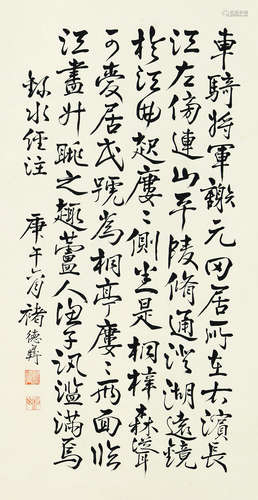 車騎將軍謝元田居所在右濱長
江左傍連山平陵脩通澄湖遠鏡
於江曲起廔〻側悉是桐梓森聳
可愛居民號為桐亭廔〻兩面臨
江盡升眺之趣蘆人漁子汎濫滿焉
水經注
庚午六月褚德彝